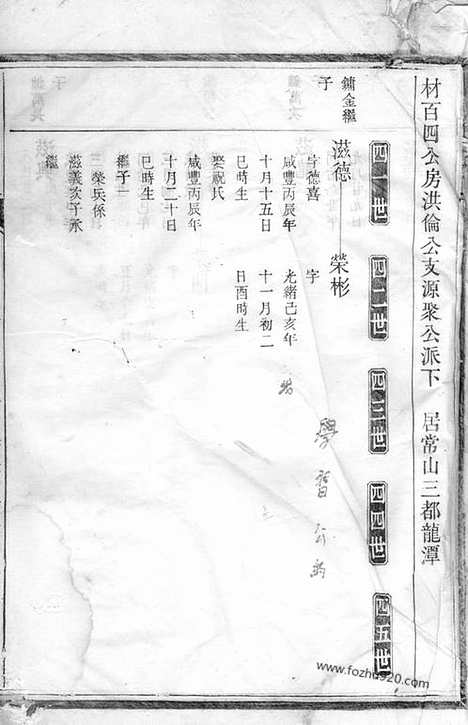 材百四公房洪倫公支源聚公派下 居常山三都龍潭
四一世
四二世
四三世
四四世
四五世
鏞金繼
子
滋德
字德喜
咸豐丙辰年
十月十五日
巳時生
娶祝氏
咸豐丙辰年
十月二十日
巳時生
繼子一
三榮兵係
滋義次子承
繼
榮彬
字
光緒己亥年
十一月初二
日酉時生
www.fozhu920.com